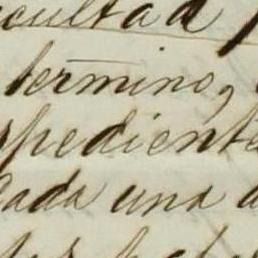 facultad
termino,
expediente
Cada una